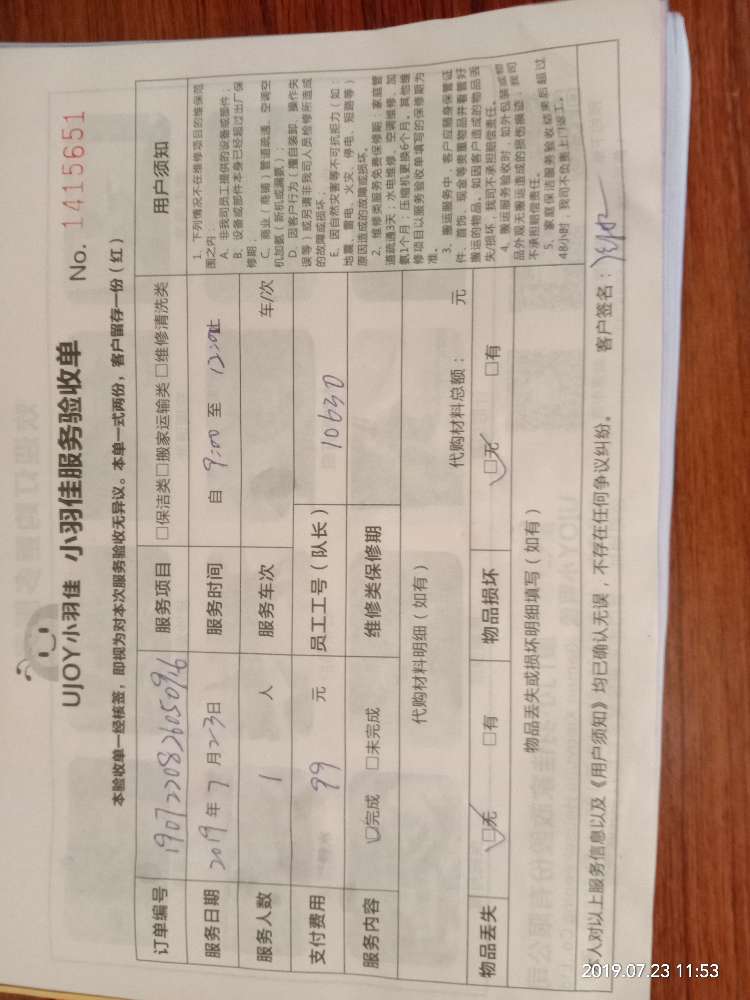 UJOY小羽佳 小羽佳服务验收单 No. 1415651
本验收单一经核签，即视为对本次服务验收无异议。本单一式两份，客户留存一份（红）
订单编号 190722083605096 服务项目 □保洁类□搬家运输类 □维修清洗类 用户须知
服务日期 2019 年 7 月 23 日 服务时间 自 9:00 至 12:00止
服务人数 1 人 服务车次 车/次
支付费用 99 元 员工工号（队长） 10630
服务内容 □完成 □未完成 维修类保修期
代购材料明细（如有） 代购材料总额： 元
物品丢失 □无 □有 物品损坏 □无 □有
物品丢失或损坏明细填写（如有）
1. 下列情况不在维修项目的维保范
围之内：
A. 非我司员工提供的设备或部件；
B. 设备或部件本身已经超过出厂保
修期；
C. 商业（商铺）管道疏通、空调空
机加氨（新机或漏氨）；
D. 因客户行为（擅自装卸、操作失
误等）或另请非我司人员检修所造成
的故障或损坏。
E. 因自然灾害等不可抗拒力（如：
地震、雷电、火灾、停电、短路等）
原因造成的故障或损坏。
2. 维修类服务免费保修期：家庭管
道疏通3天；水电维修、空调维修、加
氨1个月；压缩机更换6个月，其他维
修项目以服务验收单填写的保修期为
准。
3. 搬运服务中，客户应随身保管证
件、首饰、现金等贵重物品并看管好
搬运的物品，如因客户造成的物品丢
失/损坏，我司不承担赔偿责任。
4. 搬运服务验收时，如外包装或物
品外观无搬运造成的损伤痕迹，我司
不承担赔偿责任。
5. 家庭保洁服务验收结束后超过
48小时，我司不负责上门返工。
人对以上服务信息以及《用户须知》均已确认无误，不存在任何争议纠纷。 客户签名：
2019.07.23 11:53